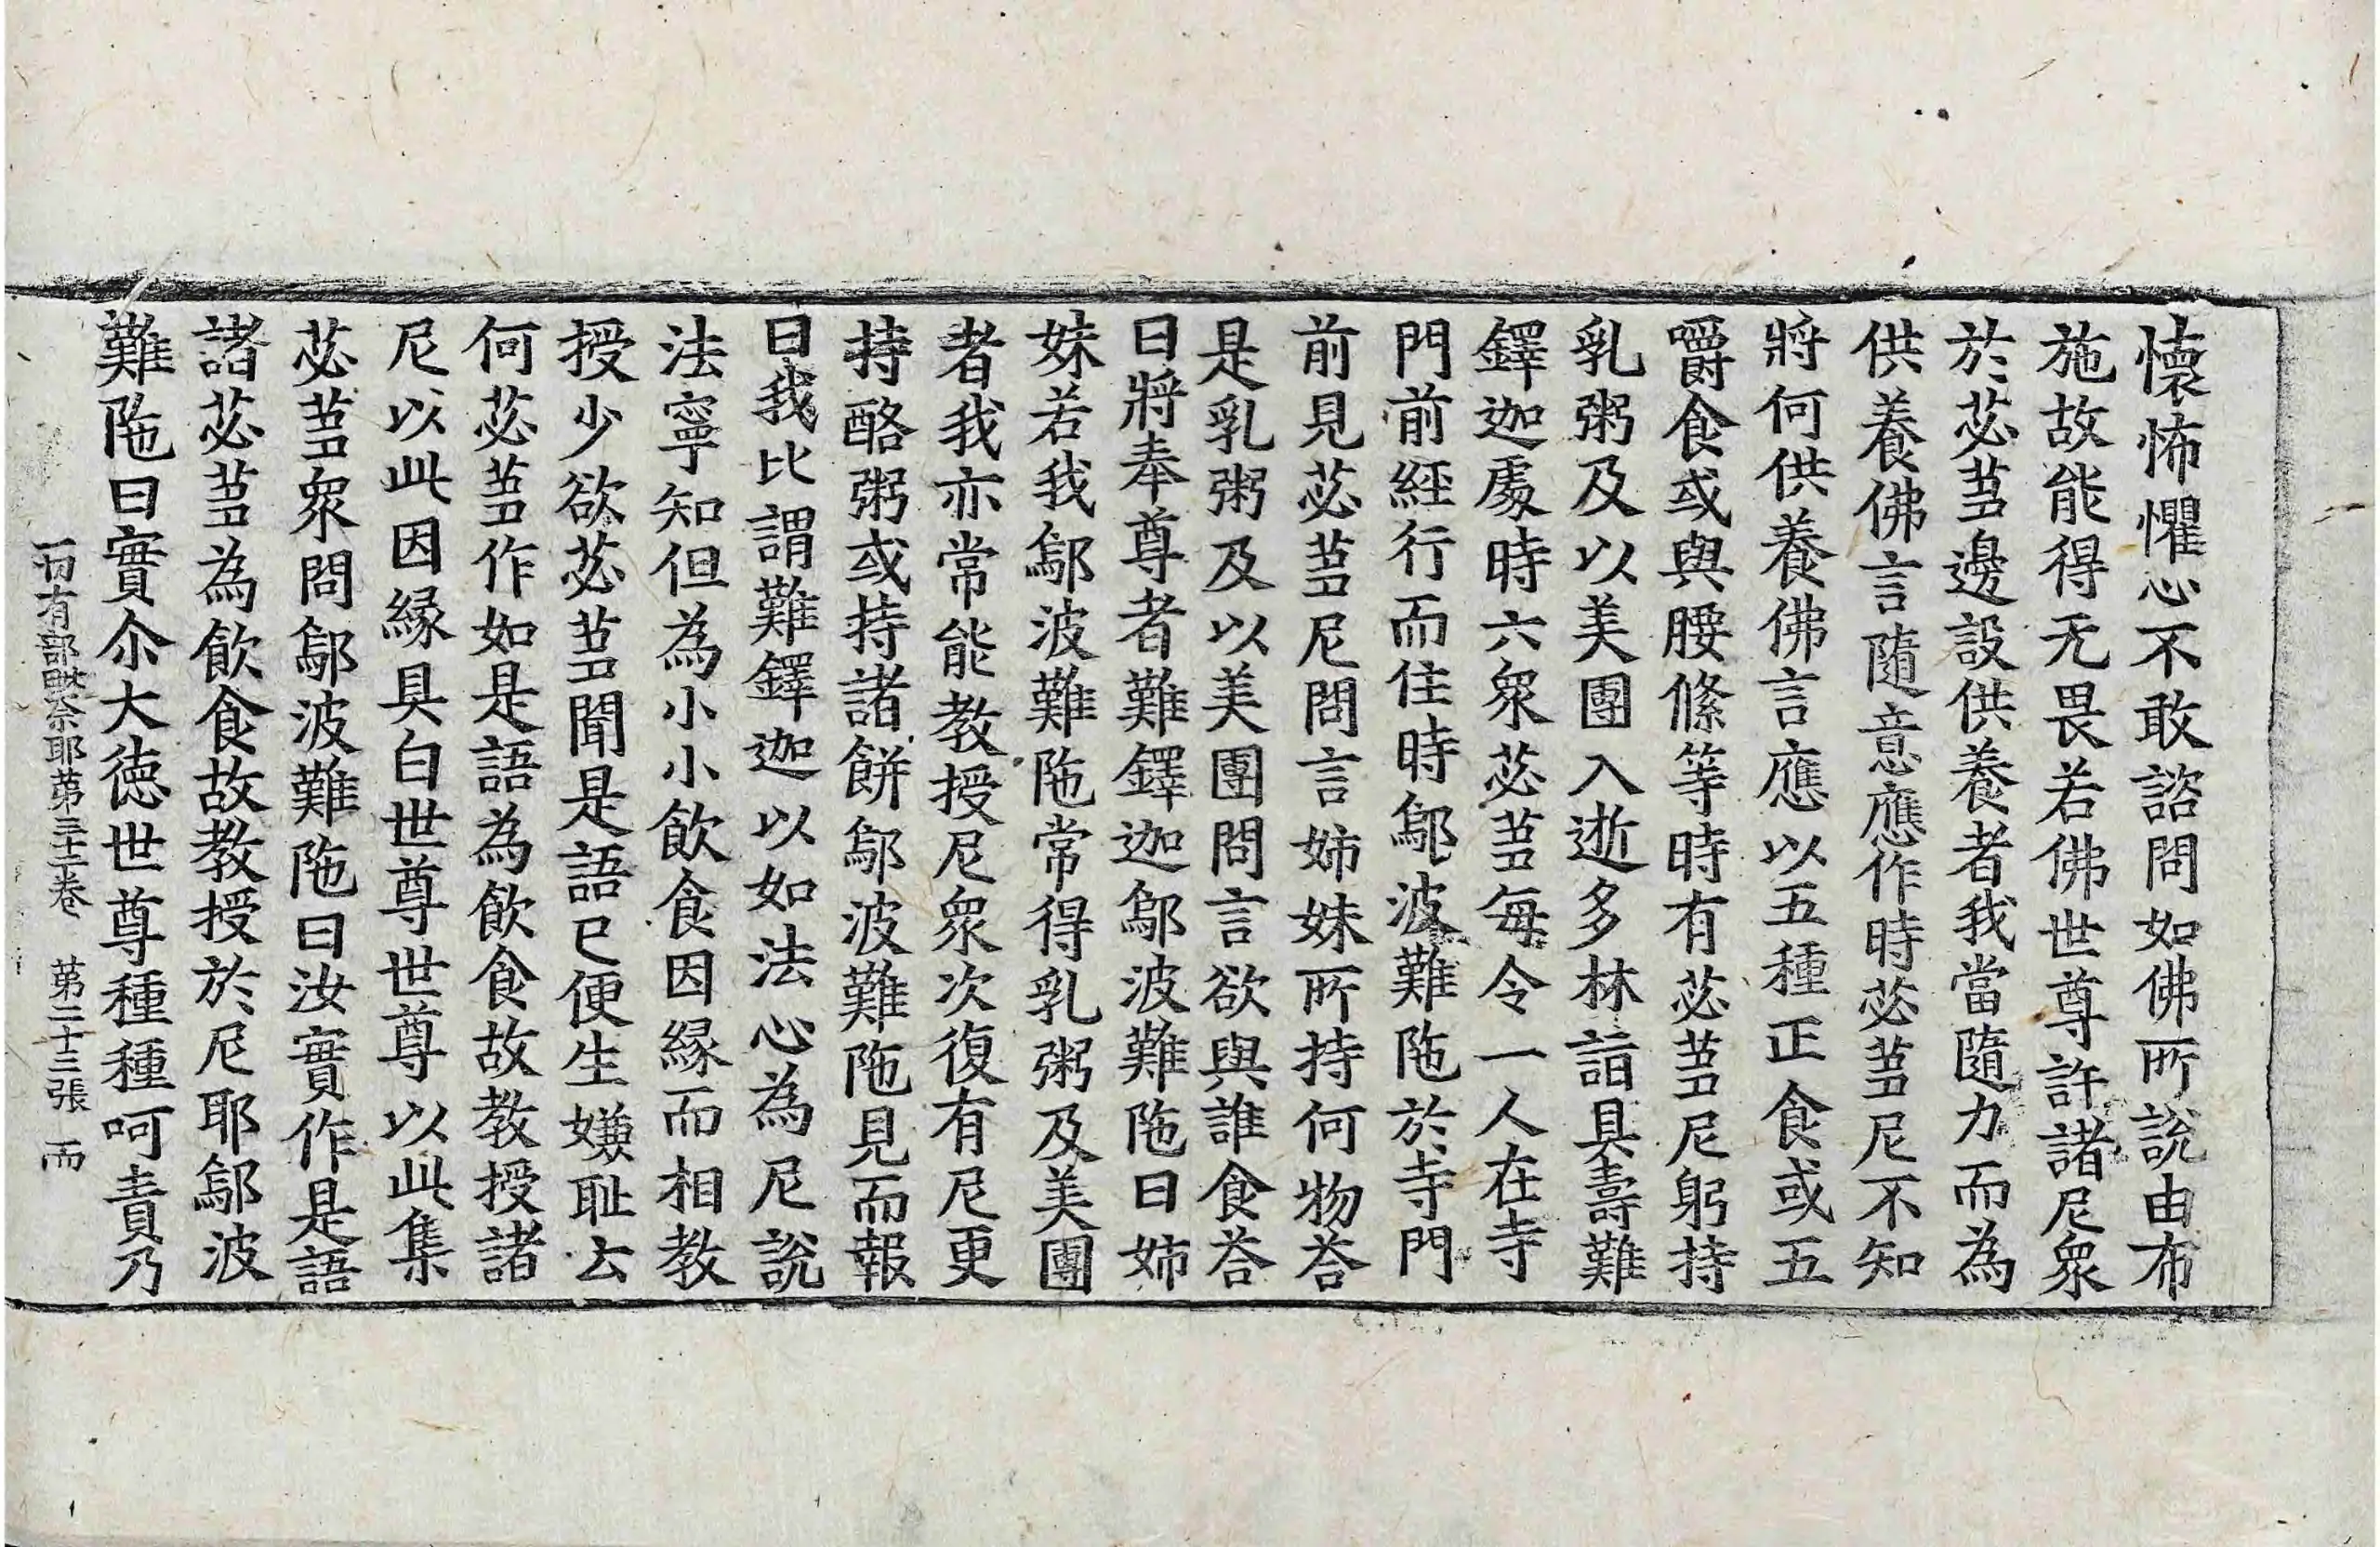 懷怖懼心不敢諮問如佛所說由布
施故能得无畏若佛世尊許諸尼衆
於苾蒭邊設供養者我當隨力而為
供養佛言隨意應作時苾蒭尼不知
將何供養佛言應以五種正食或五
嚼食或與腰絛等時有苾蒭尼躬持
乳粥及以美團入逝多林詣具壽難
鐸迦處時六衆苾蒭每令一人在寺
門前經行而住時鄔波難陁於寺門
前見苾蒭尼問言姉妹所持何物荅
是乳粥及以美團問言欲與誰食荅
曰將奉尊者難鐸迦鄔波難陁曰姉
妹若我鄔波難陁常得乳粥及美團
者我亦常能教授尼衆次復有尼更
持酪粥或持諸餅鄔波難陁見而報
曰我比謂難鐸迦以如法心為尼說
法寧知但為小小飲食因緣而相教
授少欲苾蒭聞是語已便生嫌耻云
何苾蒭作如是語為飲食故教授諸
尼以此因緣具白世尊世尊以此集
苾蒭衆問鄔波難陁曰汝實作是語
諸苾蒭為飲食故教授於尼耶鄔波
難陁曰實尒大德世尊種種呵責乃
一切有部毗奈耶第三十二卷 第二十三張 而